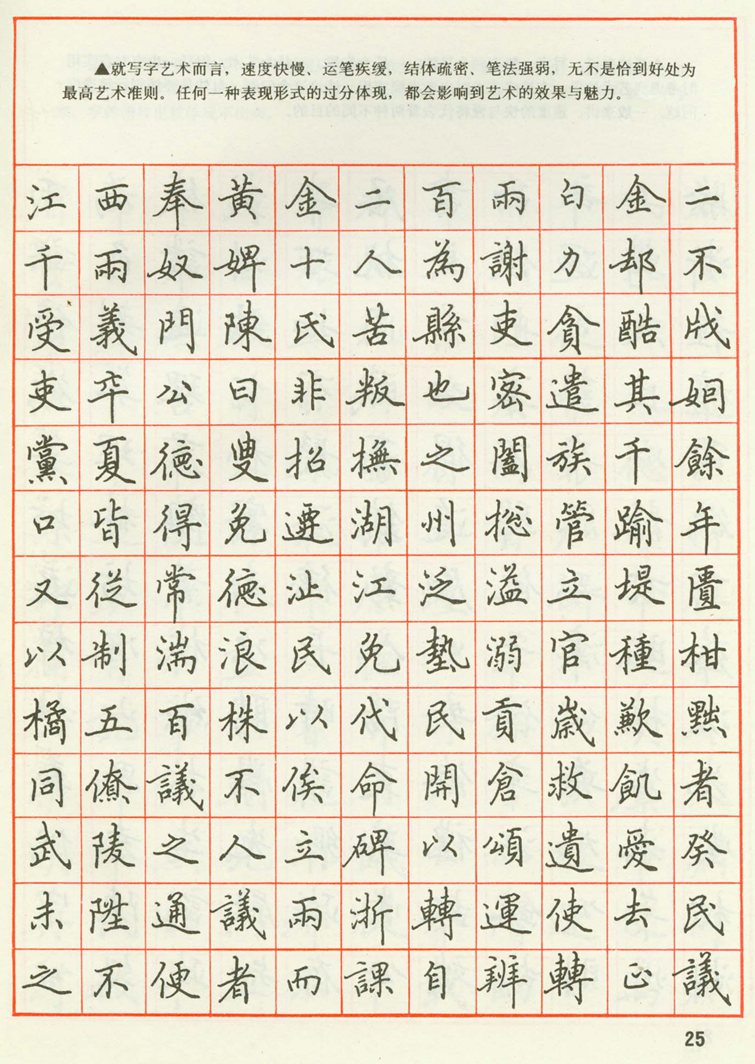 ▲就写字艺术而言，速度快慢、运笔疾缓，结体疏密、笔法强弱，无不是恰到好处为
最高艺术准则。任何一种表现形式的过分体现，都会影响到艺术的效果与魅力。
江西奉黄金二百兩白金二
千兩奴婢十人為謝力却不
受義門陳氏苦縣吏貪酷戕
吏卒公曰非叛也密遣其姻
黨夏德豊招撫之闔族千餘
口皆得免遷湖州総管踰年
又從常德沚江泛溢立堤匱
以制湍浪民免墊溺官種柑
橘五百株以代民貢歲歉黜
同僚議不俟命開倉救飢者
武陵之人立碑以頌遺愛癸
未陞通議兩淛轉運使去民
之不便者而課自辨轉正議
25